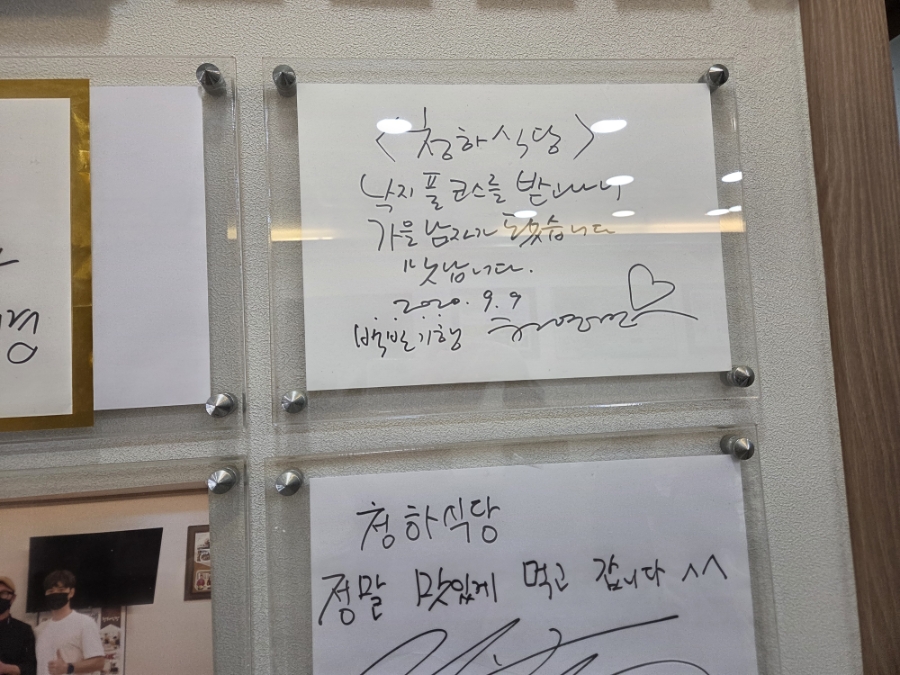 <청하식당>
낙지 풀 코스를 받고나니
가을 남자가 됐습니다
맛납니다.
2020. 9. 9
백반기행
청하식당
정말 맛있게 먹고 갑니다 ^^